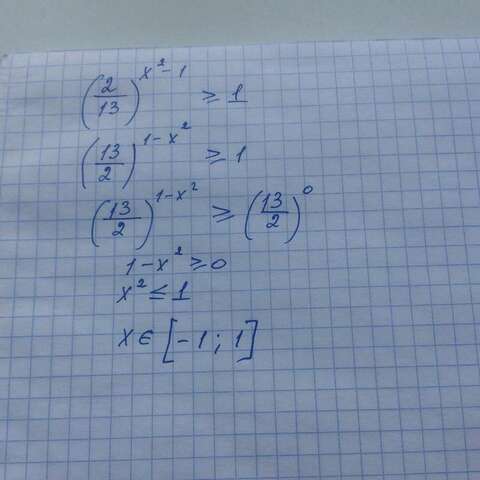 (2/13)^(x²-1) ≥ 1
(13/2)^(1-x²) ≥ 1
(13/2)^(1-x²) ≥ (13/2)^0
1-x² ≥ 0
x² ≤ 1
x ∈ [-1; 1]